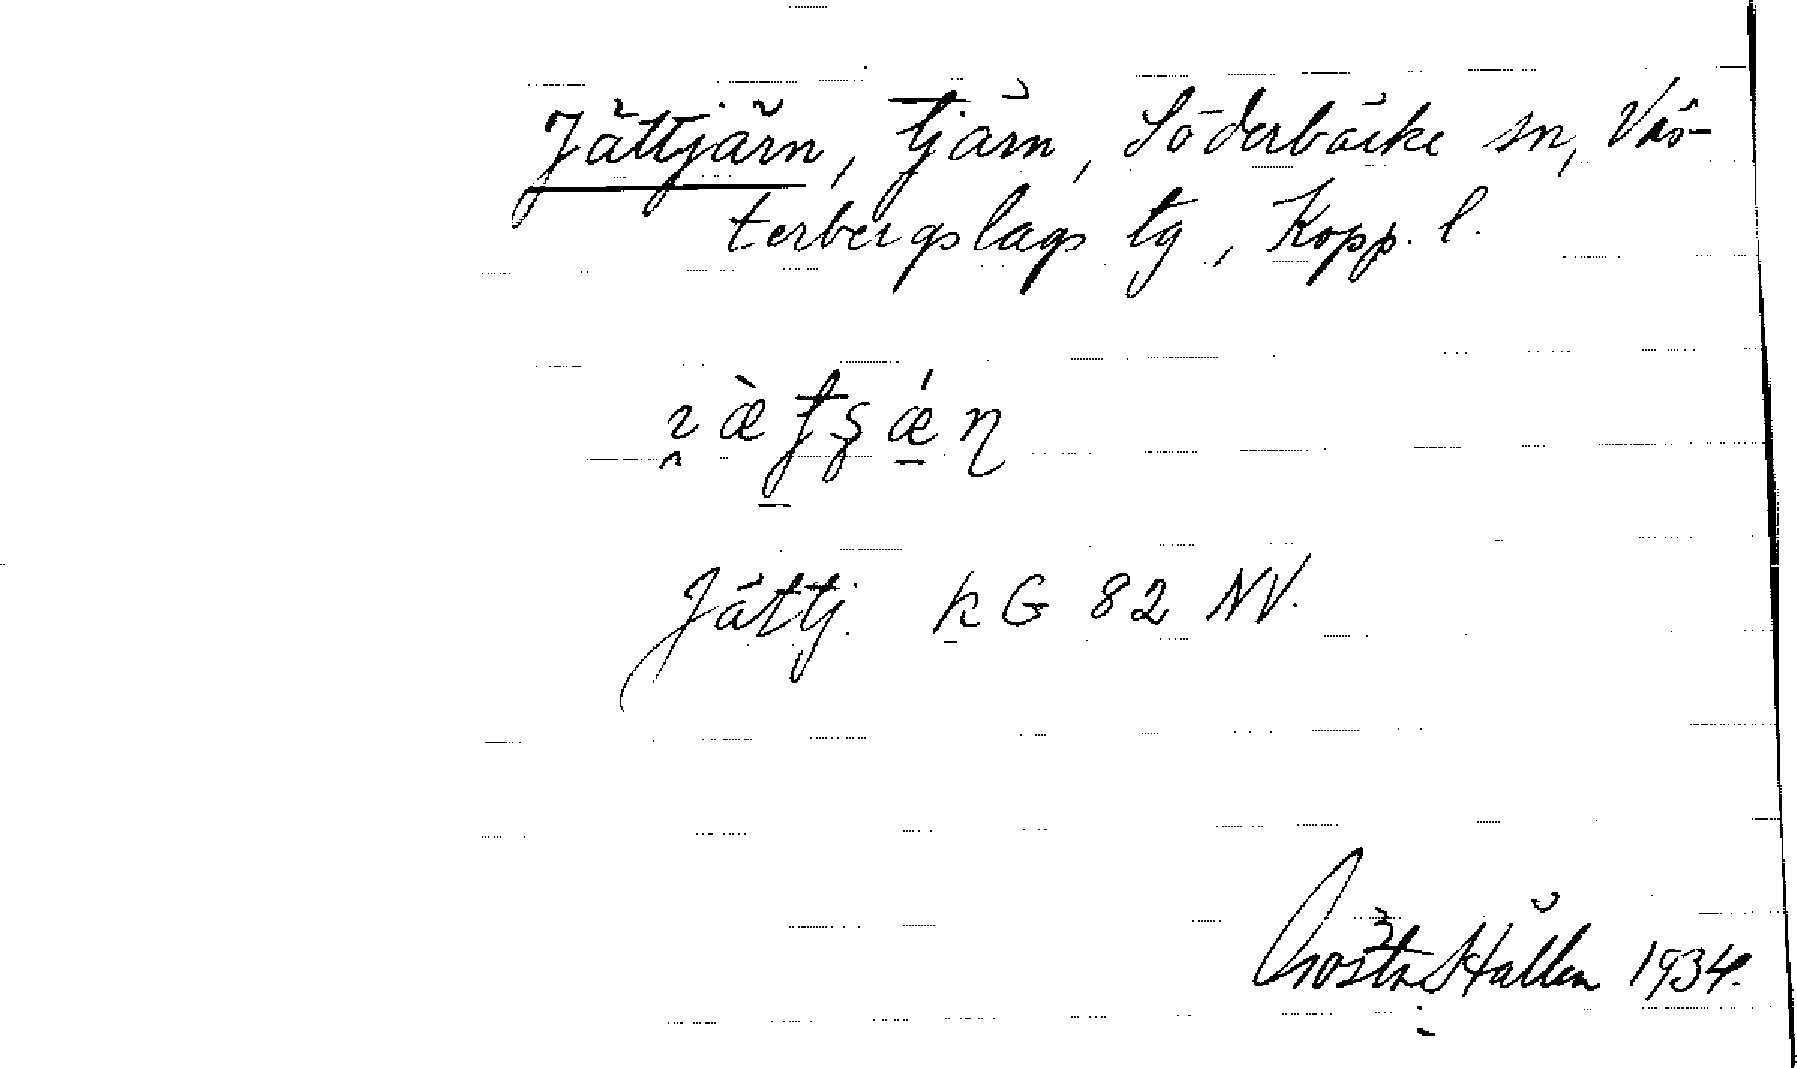 Jättjärn, tjärn, Söderbärke sn, Väs-
terbergslags tg, Kopp. l.
Jättj. kG 82 NV.
Gösta Hallen 1934.